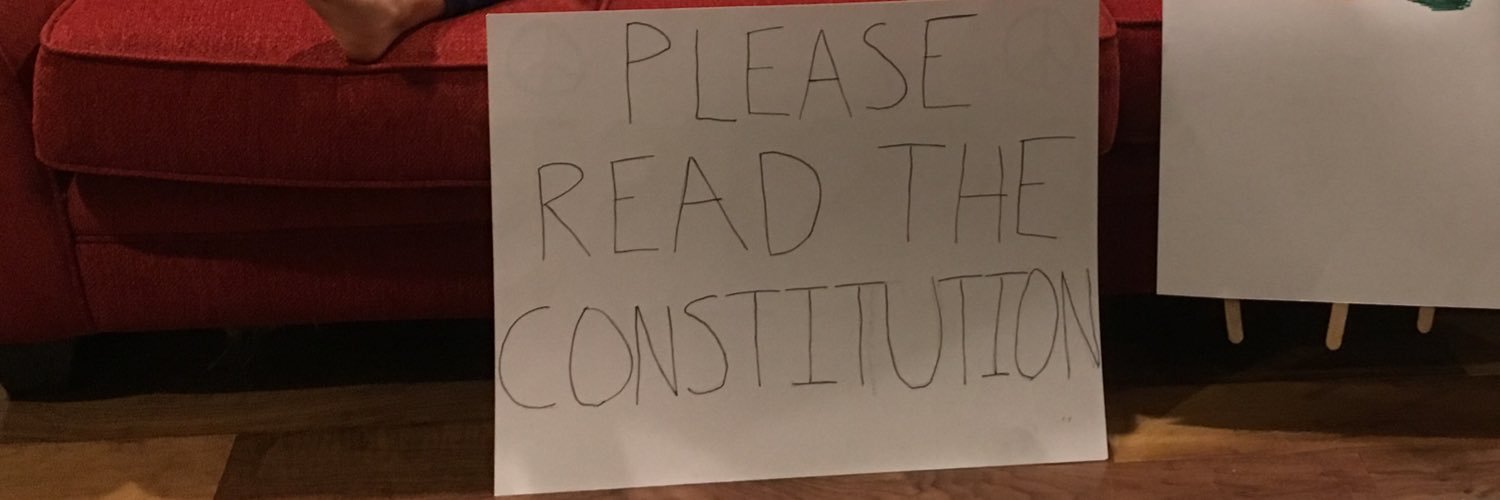 PLEASE
READ THE
CONSTITUTION